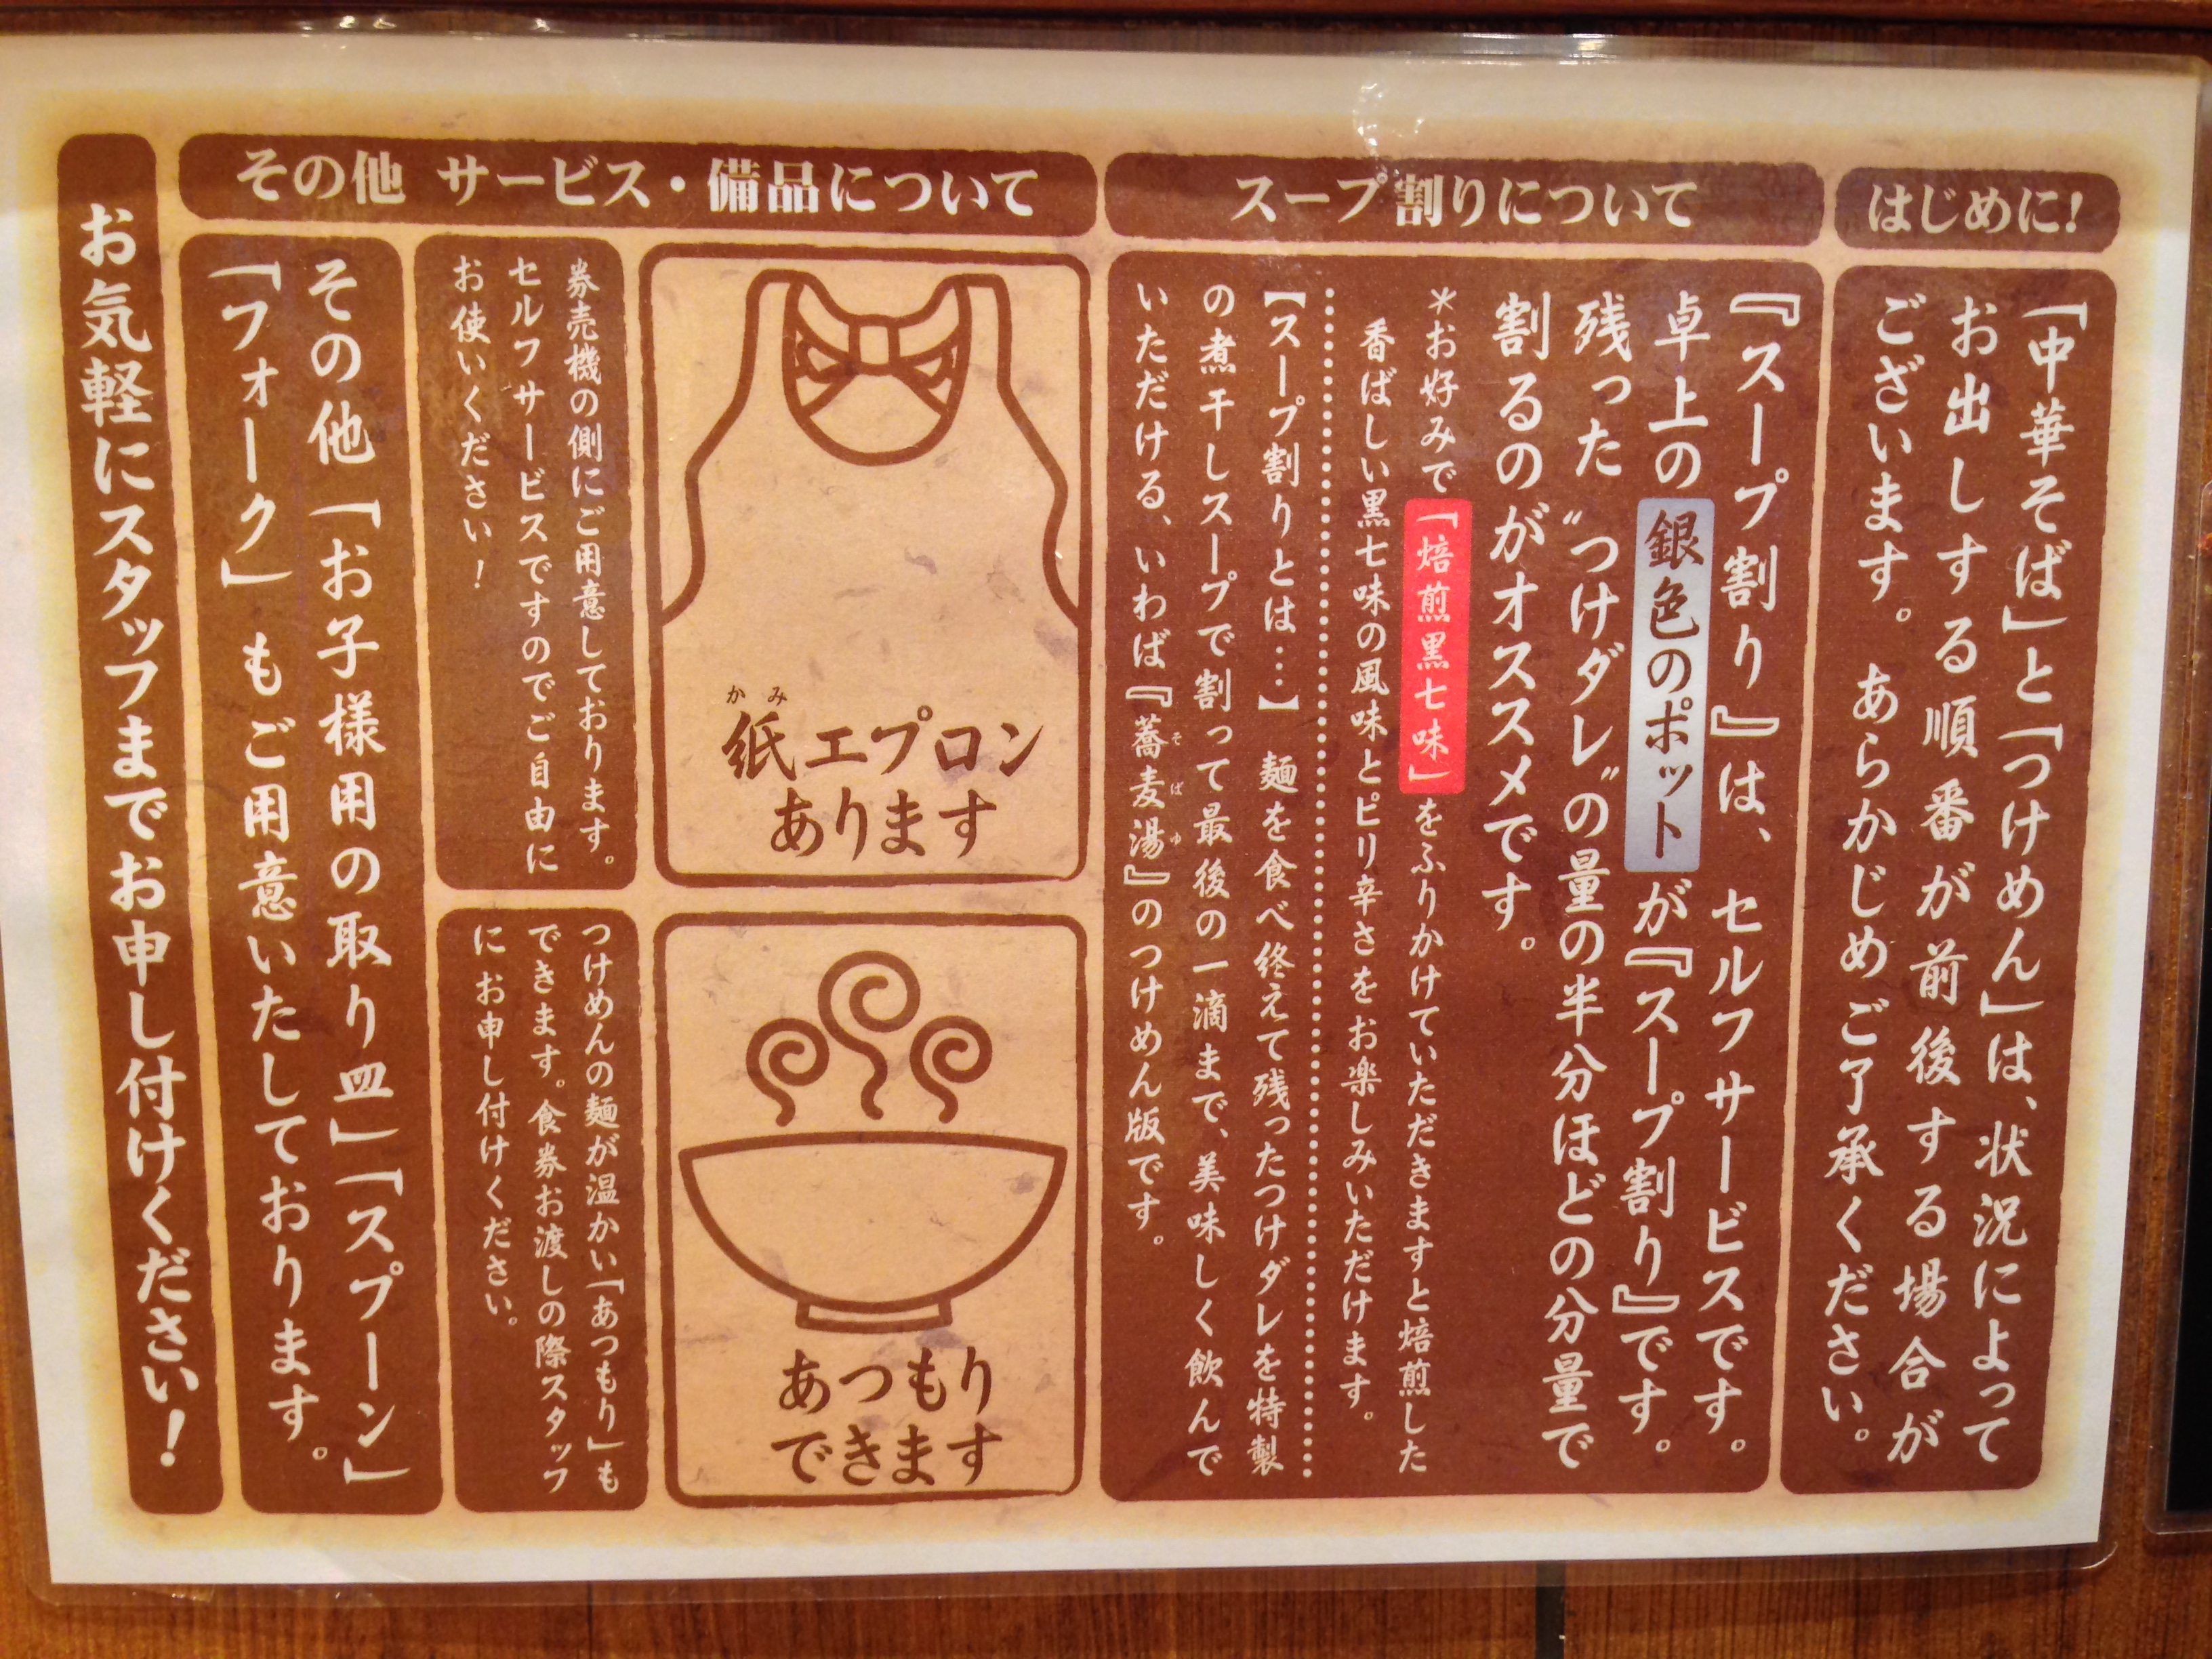 はじめに!
「中華そば」と「つけめん」は、状況によって
お出しする順番が前後する場合が
ございます。 あらかじめご了承ください。
スープ割りについて
『スープ割り』は、 セルフサービスです。
卓上の銀色のポットが『スープ割り』です。
残った〝つけダレ〟の量の半分ほどの分量で
割るのがオススメです。
＊お好みで「焙煎黒七味」をふりかけていただきますと焙煎した
香ばしい黒七味の風味とピリ辛さをお楽しみいただけます。
【スープ割りとは…】 麺を食べ終えて残ったつけダレを特製
の煮干しスープで割って最後の一滴まで、美味しく飲んで
いただける、いわば『蕎麦湯』のつけめん版です。
そばゆ
その他 サービス・備品について
かみ
紙エプロン
あります
券売機の側にご用意しております。
セルフサービスですのでご自由に
お使いください！
あつもり
できます
つけめんの麺が温かい「あつもり」も
できます。食券お渡しの際スタッフ
にお申し付けください。
その他「お子様用の取り皿」「スプーン」
「フォーク」もご用意いたしております。
お気軽にスタッフまでお申し付けください！